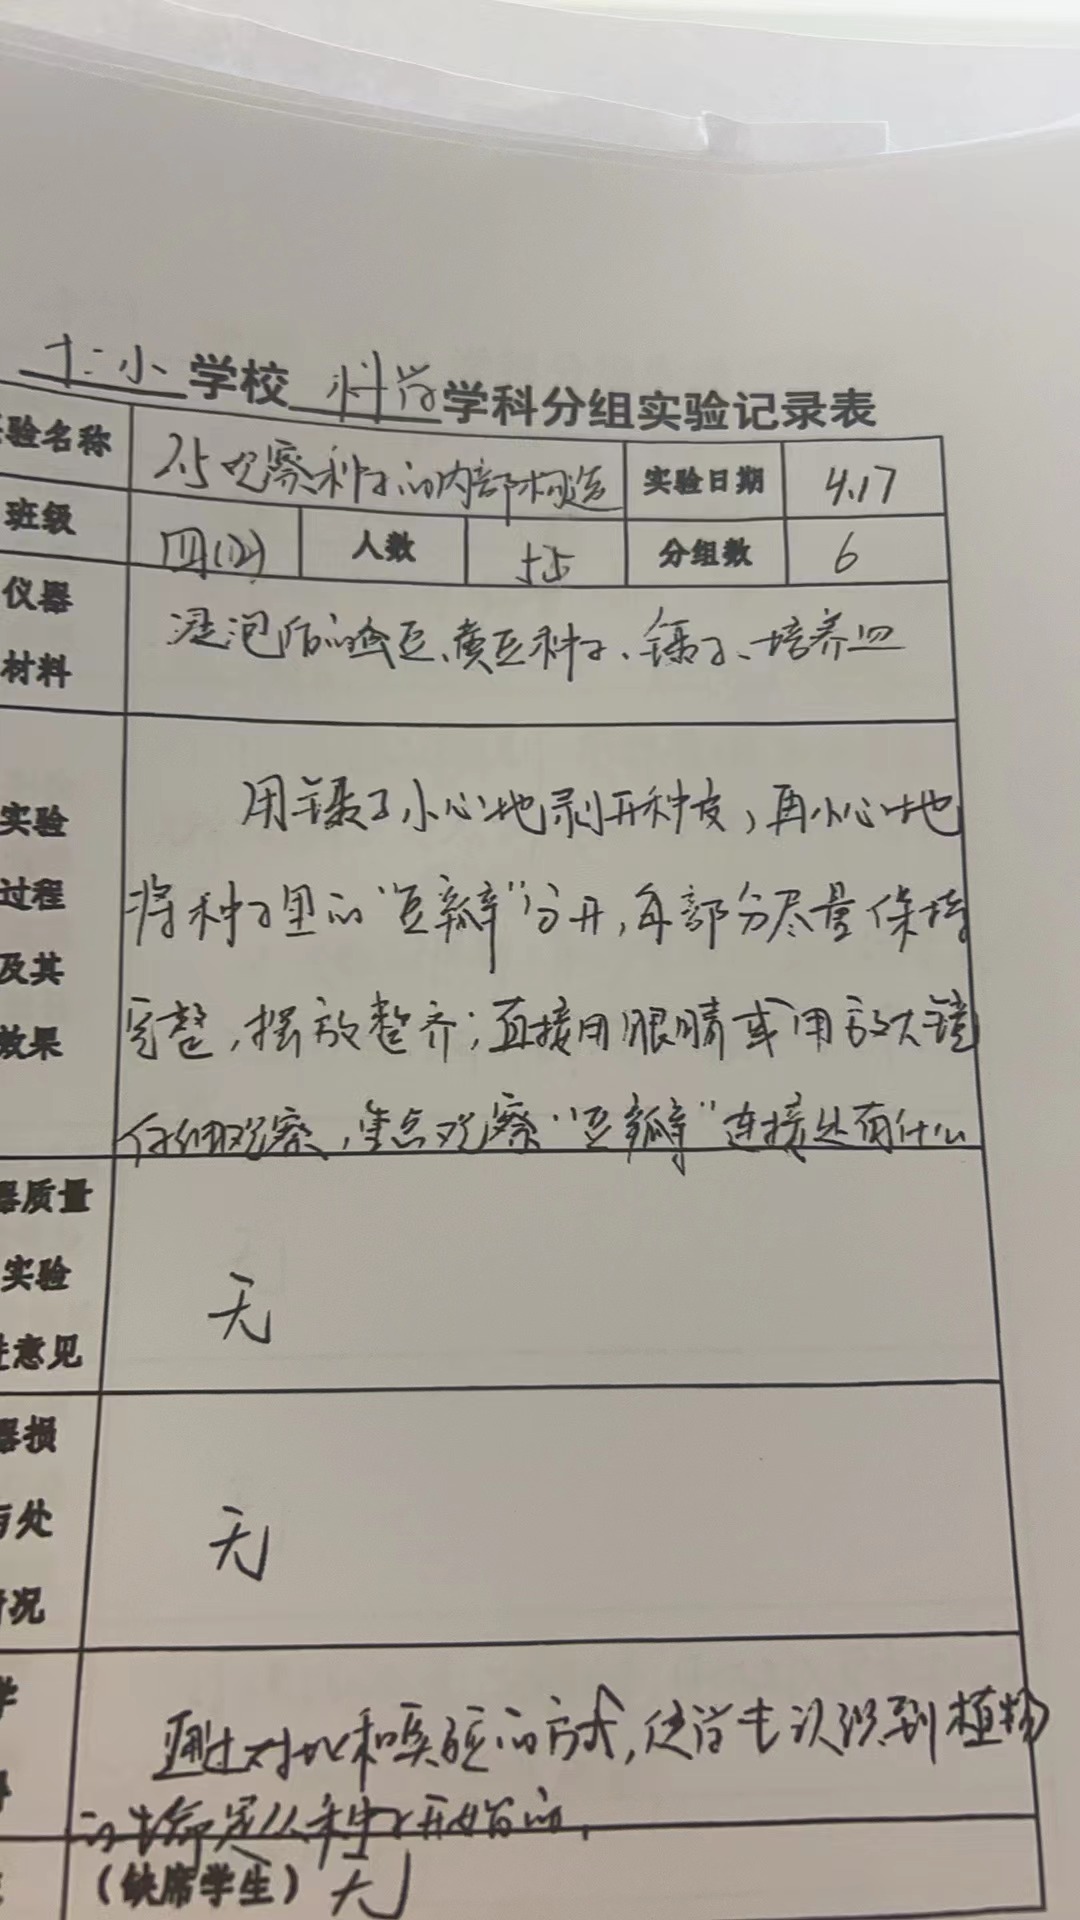 十二小学校 科学学科分组实验记录表
验名称 2.5观察种子的内部构造 实验日期 4.17
班级 四(12) 人数 55 分组数 6
仪器
材料
浸泡后的蚕豆、黄豆种子、镊子、培养皿
实验
过程
及其
效果
用镊子小心地剥开种皮，再小心地
将种子里的“豆瓣”分开，每部分尽量保持
完整，摆放整齐；直接用眼睛或用放大镜
仔细观察，重点观察“豆瓣”连接处有什么
器质量
实验
进意见
无
器损
与处
情况
无
学
通过对比和实验的方式，使学生认识到植物
的生命是从种子开始的.
（缺席学生）无